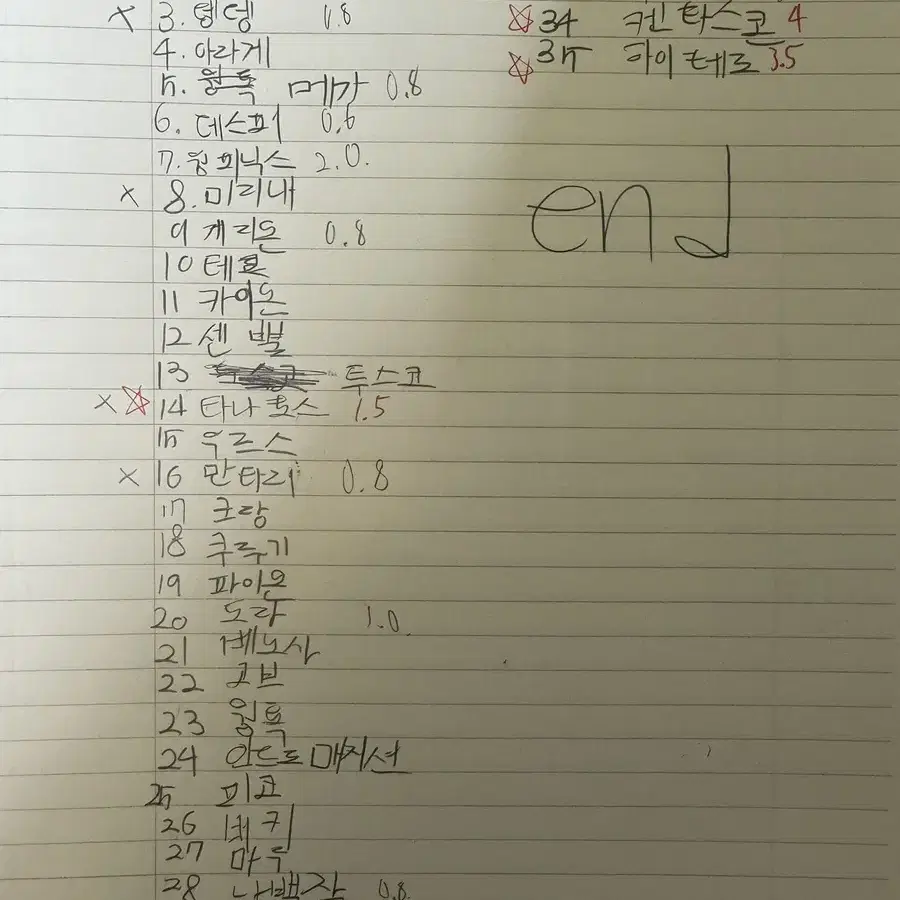 x 3. 텅텅 1.8
4. 아라게
5. 메가 0.8
6. 데스피 0.6
7. 윙피닉스 2.0.
x 8. 미리내
9 게리온 0.8
10 테로
11 카이온
12 센 뿔
13 투스코
x ☆ 14 타나토스 1.5
15 우르스
16 만타리 0.8
17 크랑
18 쿠루기
19 파이온
20 도라 1.0.
21 베노사
22 고브
23 윙톡
24 안드로매지션
25 피코
26 베키
27 마두
28 나백작 0.8
☆ 34 켄타스코 4
☆ 35 하이테로 3.5
end